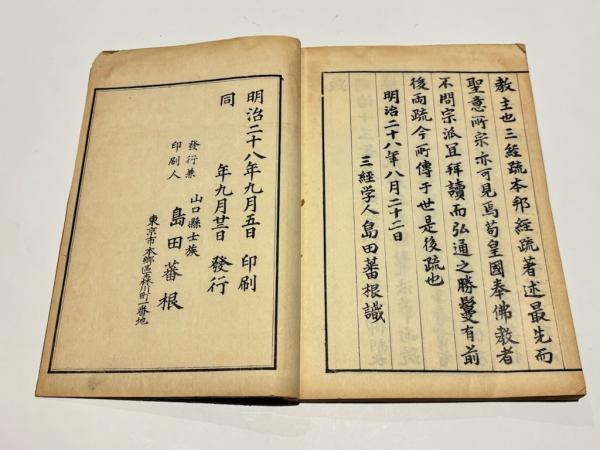 教主也三經疏本邦經疏著述最先而
聖意所宗亦可見焉苟皇國奉佛教者
不問宗派宜拜讀而弘通之勝鬘有前
後兩疏今所傳于世是後疏也
明治二十八年八月二十二日
三経学人島田蕃根識
明治二十八年九月五日印刷
同年九月廿三日發行
發行兼印刷人
山口縣士族
島田蕃根
東京市本鄉區森川町一番地